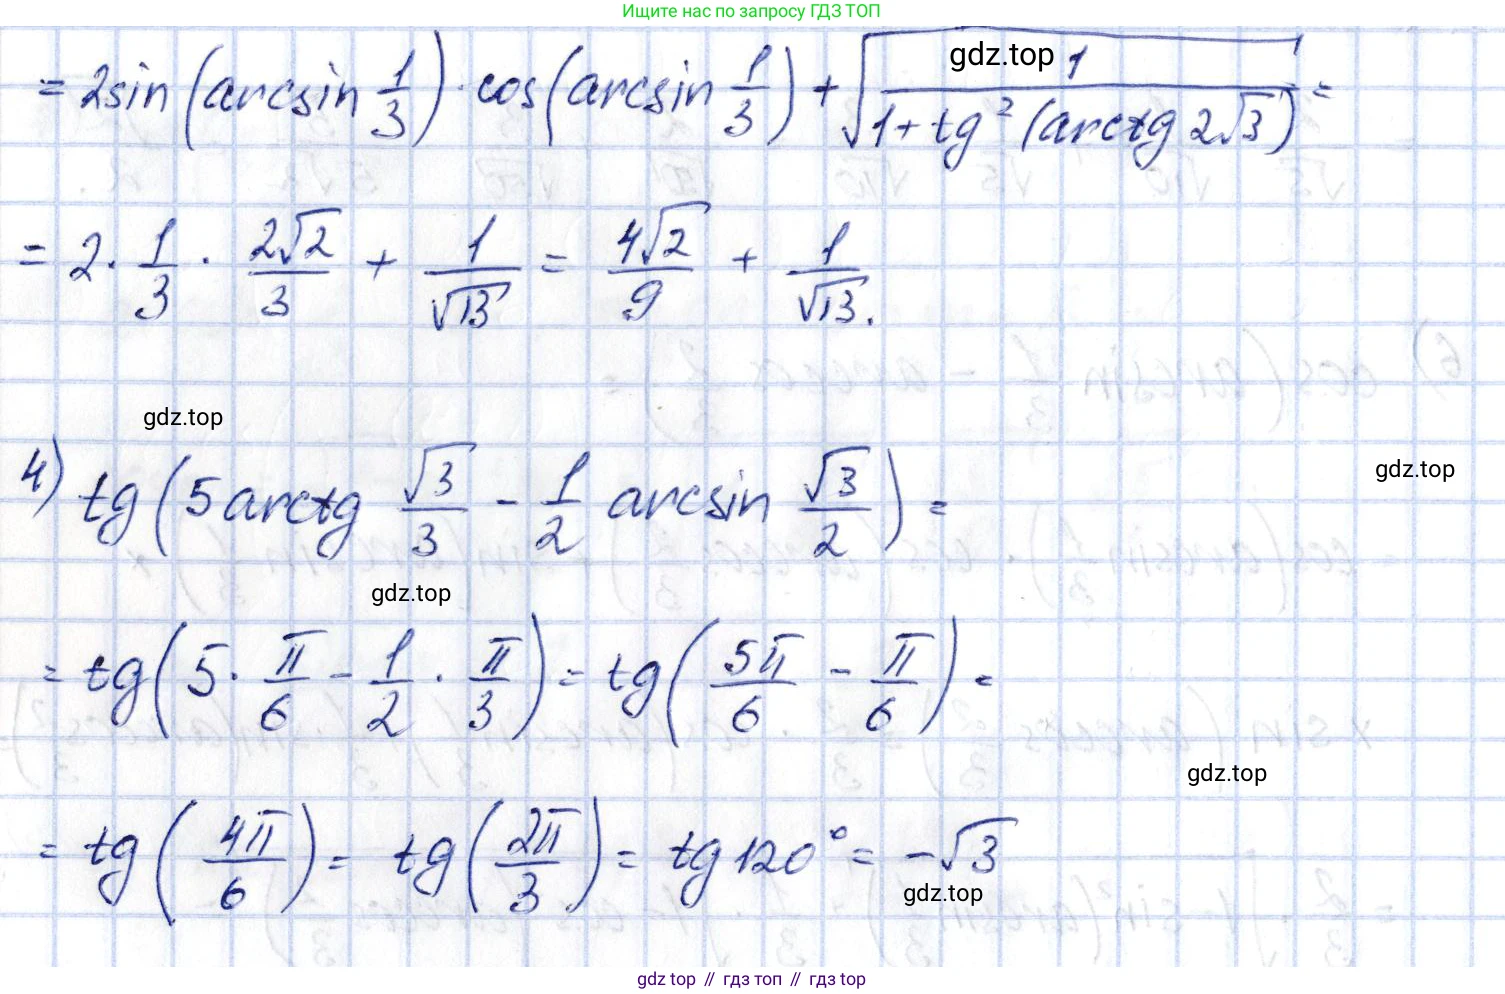 Ищите нас по запросу ГДЗ ТОП
= 2sin(arcsin 1/3) · cos(arcsin 1/3) + √(1/(1+tg²(arctg 2√3))) =
gdz.top
= 2 · 1/3 · 2√2/3 + 1/√13 = 4√2/9 + 1/√13.
gdz.top
4) tg(5 arctg √3/3 - 1/2 arcsin √3/2) =
gdz.top
gdz.top
= tg(5 · π/6 - 1/2 · π/3) = tg(5π/6 - π/6) =
gdz.top
= tg(4π/6) = tg(2π/3) = tg 120° = -√3
gdz.top
gdz top // гдз топ // гдз top